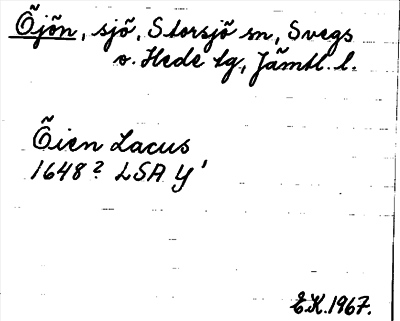 Öjön, sjö, Storsjö sn, Svegs
o. Hede tg, Jämtl. l.
Öien Lacus
1648? LSA Y'
E.K. 1967.